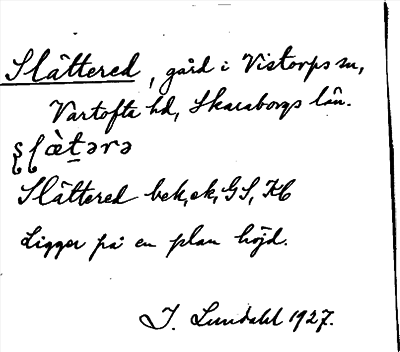 Slättered, gård i Vistorps sn,
Vartofta hd, Skaraborgs län.
ʂɭæ̀t̠ərə
Slättered bek, ek, GS, KC
Ligger på en plan höjd.
I. Lundahl 1927.